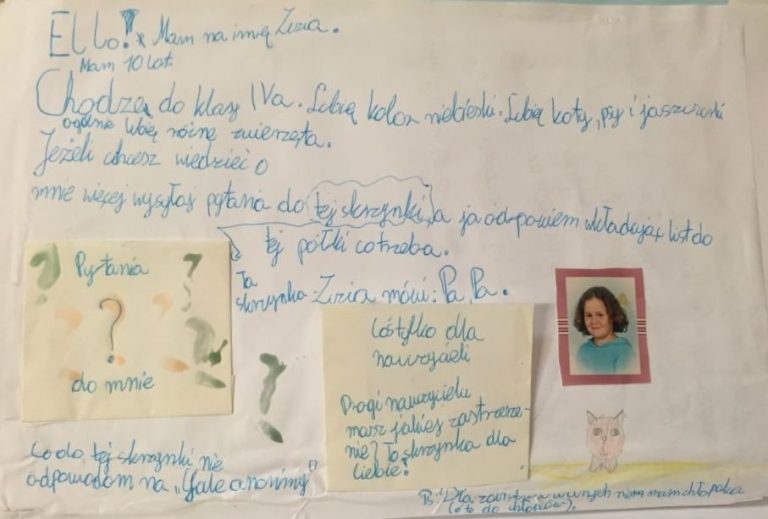 Ello! Mam na imię Zuzia.
Mam 10 lat.
Chodzę do klasy IVa. Lubię kolor niebieski. Lubię koty, psy i jaszczurki
ogólnie lubię różne zwierzęta.
Jeżeli chcesz wiedzieć o
mnie więcej wysyłaj pytania do tej skrzynki, a ja odpowiem wkładając list do
tej półki co trzeba.
Ta
skrzynka
Zuzia mówi: Pa, Pa.
Pytania
?
do mnie
Cóś tylko dla
nauczycieli
Drogi nauczycielu
masz jakieś zastrzeże-
nie? To skrzynka dla
Ciebie!
Co do tej skrzynki nie
odpowiadam na „
Dla nie mam chłopaka
(o to do chłopców).